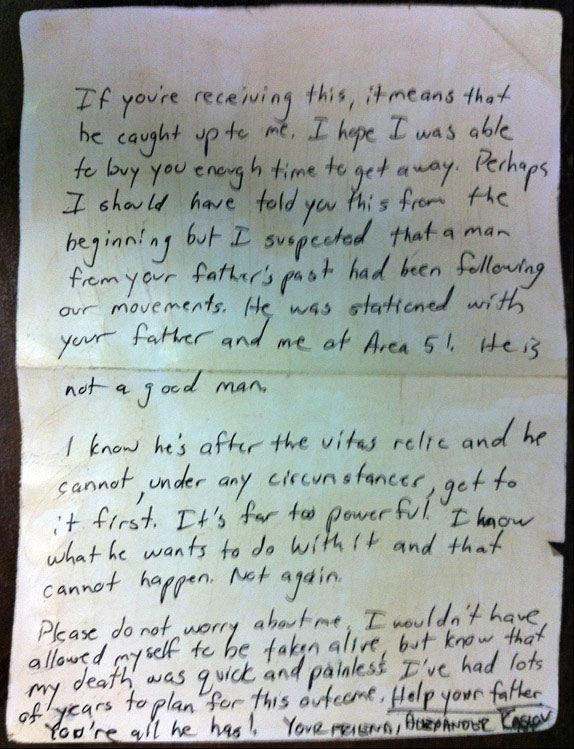 If you're receiving this, it means that
he caught up to me. I hope I was able
to buy you enough time to get away. Perhaps
I should have told you this from the
beginning but I suspected that a man
from your father's past had been following
our movements. He was stationed with
your father and me at Area 51. He is
not a good man.
I know he's after the vitas relic and he
cannot, under any circumstances, get to
it first. It's far too powerful. I know
what he wants to do with it and that
cannot happen. Not again.
Please do not worry about me. I wouldn't have
allowed myself to be taken alive, but know that
my death was quick and painless. I've had lots
of years to plan for this outcome. Help your father
You're all he has! YOUR FRIEND, ALEXANDER